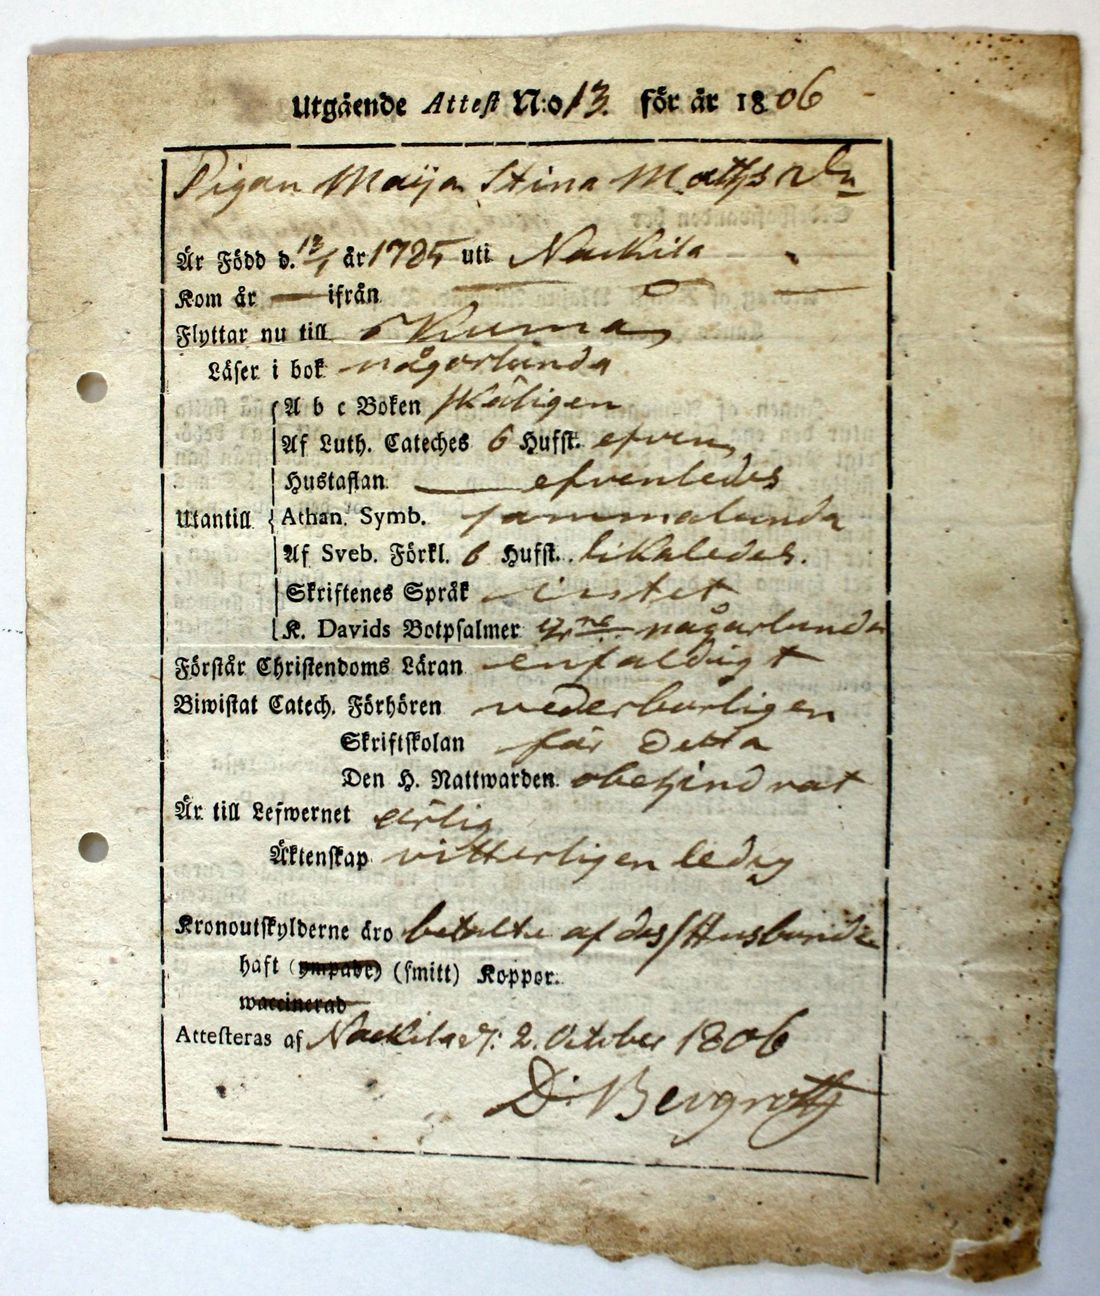 Utgående Attest N:o 13. för år 1806
Pigan Maija Stina Mathsdr
Är Född d. 13/1 år 1785 uti Nackila
Kom år — ifrån —
Flyttar nu till Kumo
Läser i bok någorlunda
A b c Boken skäligen
Af Luth. Cateches 6 Hufst. efven
Hustaflan efvenledes
Utantill Athan. Symb. sammalunda
Af Sveb. Förkl. 6 Hufst. likaledes.
Skriftenes Språk
K. Davids Botpsalmer någorlunda
Förstår Christendoms Läran enfaldigt
Biwistat Catech. Förhören vederbörligen
Skriftskolan för detta
Den H. Nattwarden obehindrat
Är till Lefwernet ärlig
Äktenskap vitterligen ledig
Kronoutskylderne äro betalte af dess Husbonde
haft (ympade) (smitt) Koppor.
waccinerad
Attesteras af Nackila d. 2. October 1806
D. Bergroth